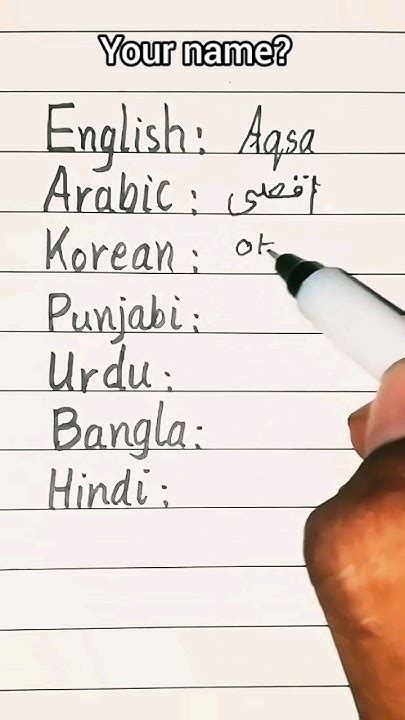 Your name?
English: Aqsa
Arabic: اقصى
Korean: 아
Punjabi:
Urdu:
Bangla:
Hindi: